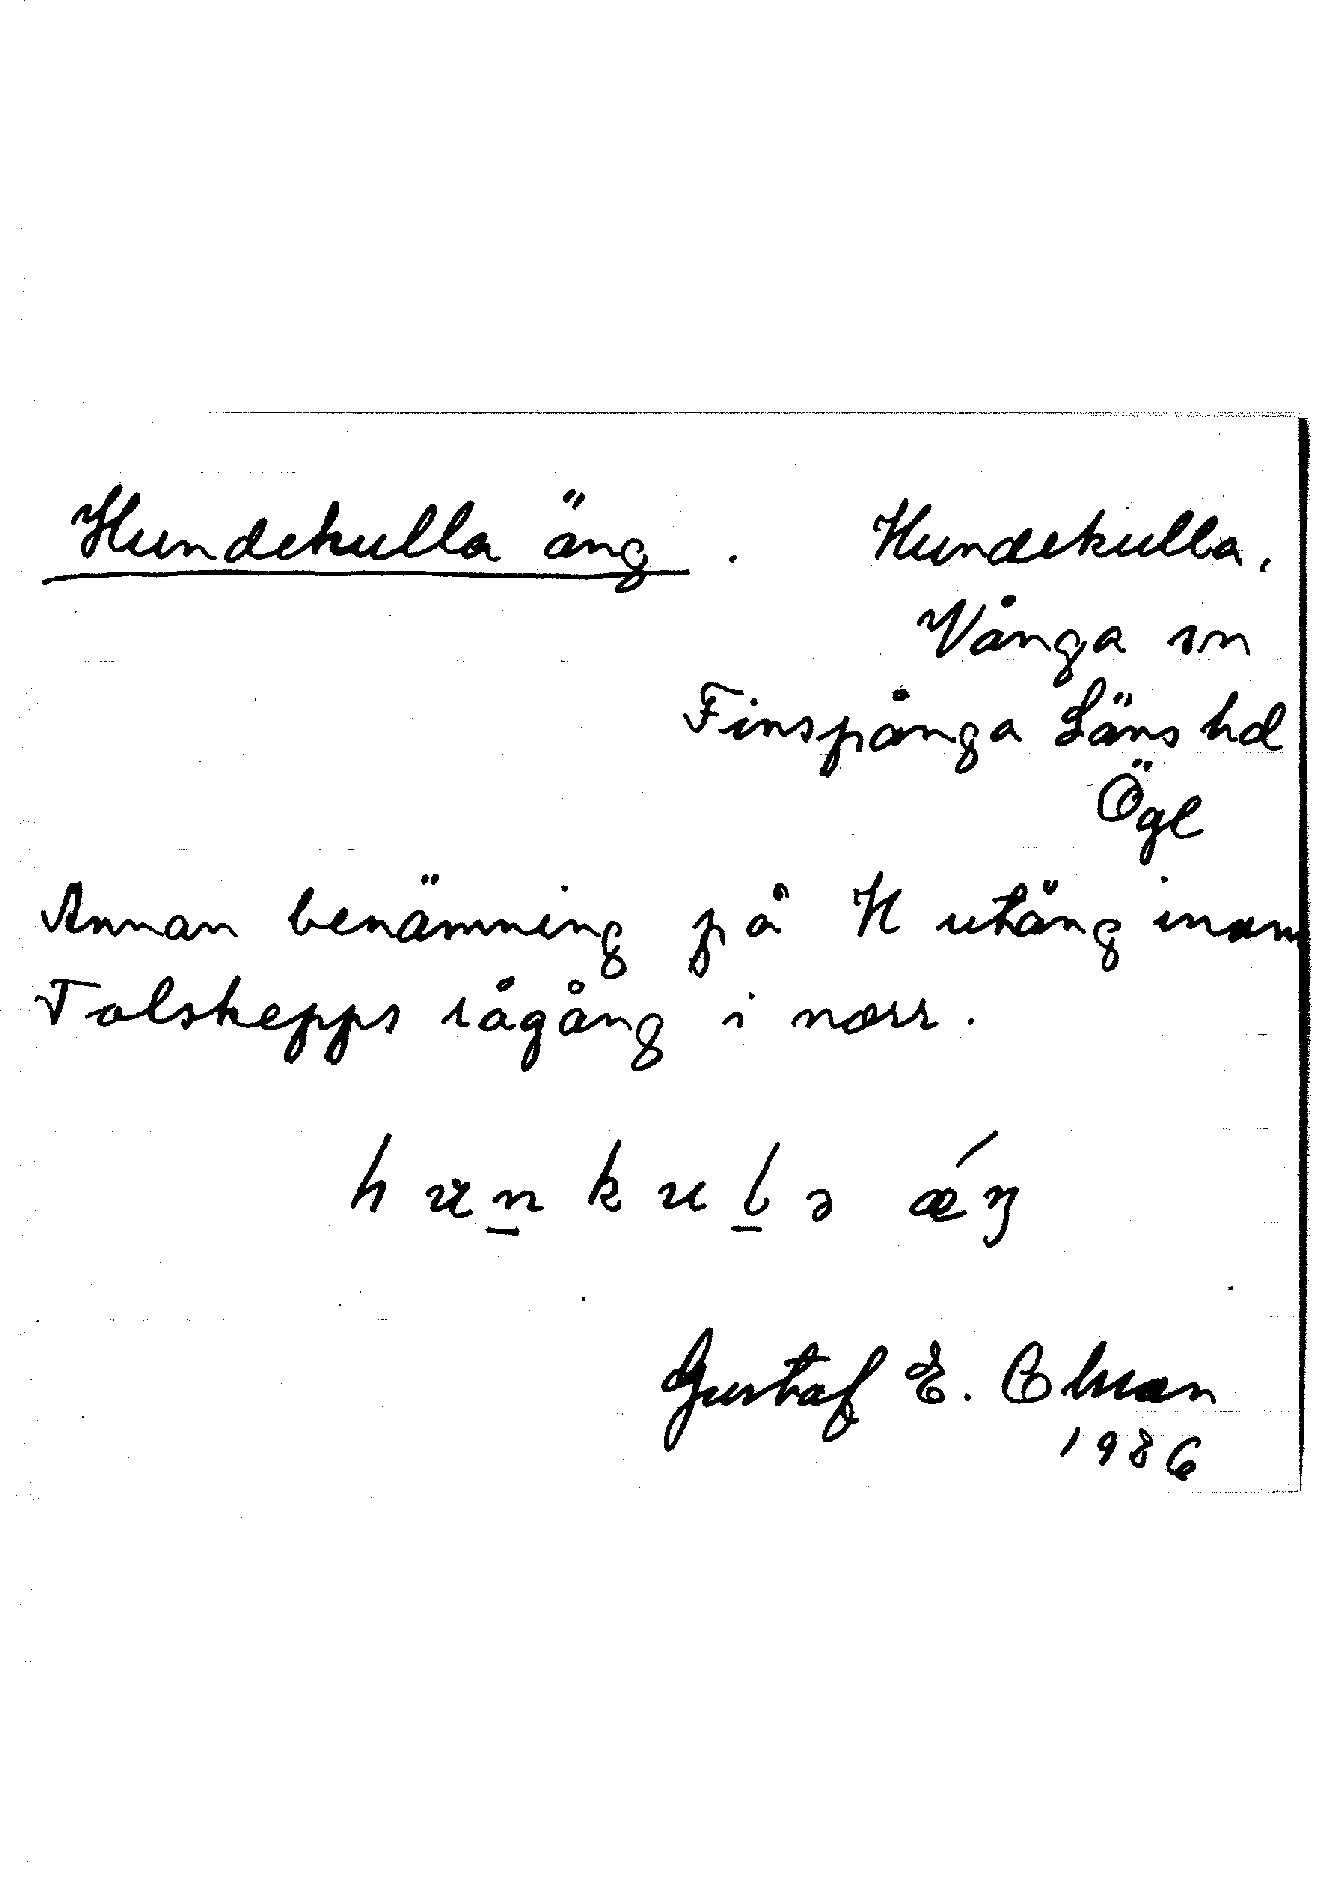 Hundekulla äng . Hundekulla,
Vånga sn
Finspånga Läns hd
Ögl
Annan benämning på H utäng inom
Tolskepps rågång i norr.
hunkulə ǽŋ
Gustaf E.
1986